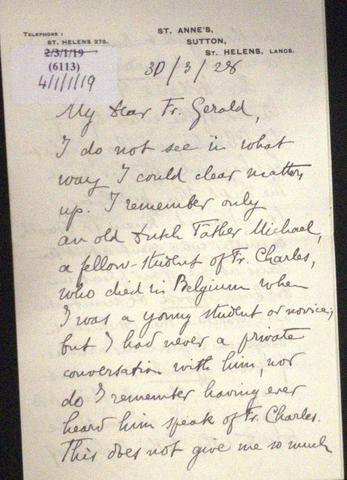 TELEPHONE :
ST. HELENS 275.
ST. ANNE'S,
SUTTON,
ST. HELENS, LANCS.
2/3/1/19
(6113)
4/1/1/19
30/3/28
My Dear Fr. Gerald,
I do not see in what
way I could clear matters
up. I remember only
an old Dutch Father Michael,
a fellow-student of Fr. Charles,
who died in Belgium when
I was a young student or novice;
but I had never a private
conversation with him, nor
do I remember having ever
heard him speak of Fr. Charles.
This does not give me so much